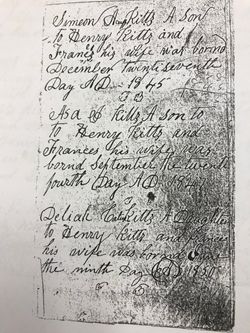 Simeon Kitts A Son
to Henry Kitts and
Frances his wife was bornd
December Twenty Seventh
Day AD 1845
Asa Kitts A son to
to Henry Kitts and
Frances his wife was
bornd September the twenty
fourth Day AD
Deliah Kitts A
to Henry Kitts and
his wife was bornd
the ninth Day AD 1850